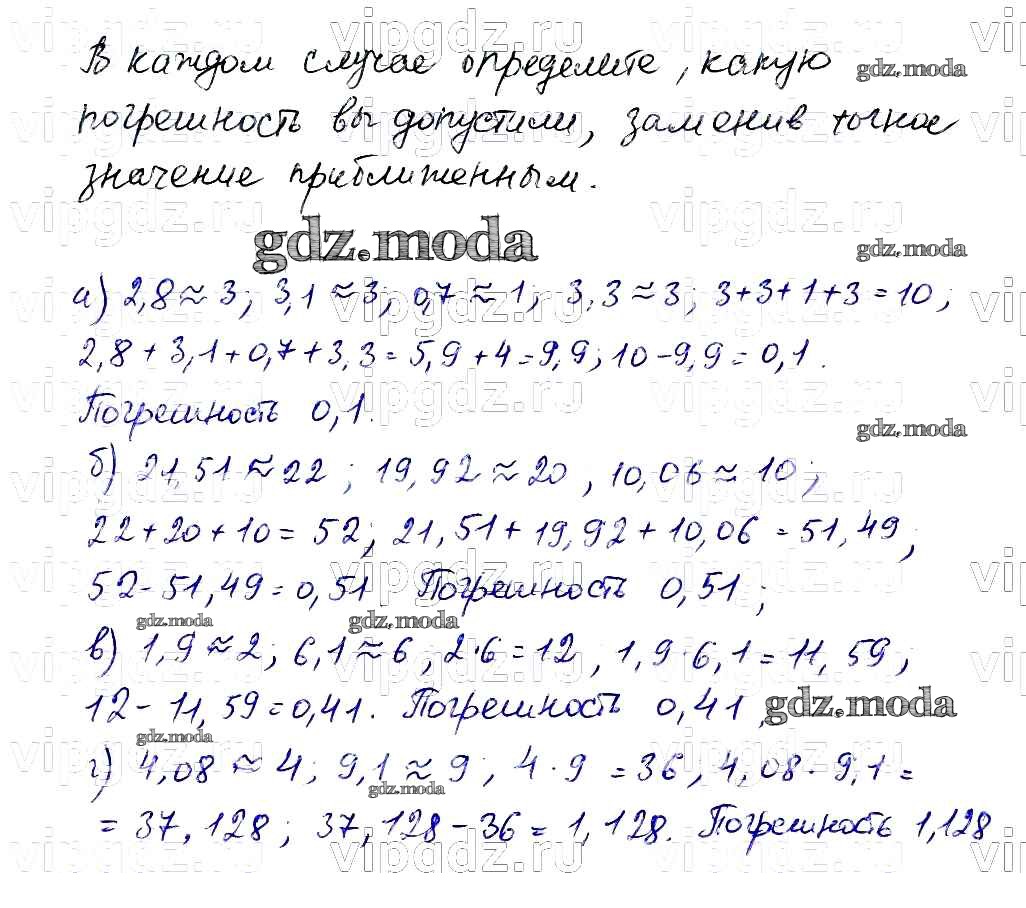 В каждом случае определите, какую
погрешность вы допустили, заменив точное
значение приближенным.
gdz.moda
а) 2,8 ≈ 3; 3,1 ≈ 3; 0,7 ≈ 1; 3,3 ≈ 3; 3+3+1+3 = 10;
2,8 + 3,1 + 0,7 + 3,3 = 5,9 + 4 = 9,9; 10 - 9,9 = 0,1.
Погрешность 0,1.
б) 21,51 ≈ 22; 19,92 ≈ 20, 10,06 ≈ 10;
22 + 20 + 10 = 52; 21,51 + 19,92 + 10,06 = 51,49;
52 - 51,49 = 0,51. Погрешность 0,51;
в) 1,9 ≈ 2; 6,1 ≈ 6, 2·6 = 12, 1,9·6,1 = 11,59;
12 - 11,59 = 0,41. Погрешность 0,41,
г) 4,08 ≈ 4; 9,1 ≈ 9, 4·9 = 36, 4,08·9,1 =
= 37,128; 37,128 - 36 = 1,128. Погрешность 1,128